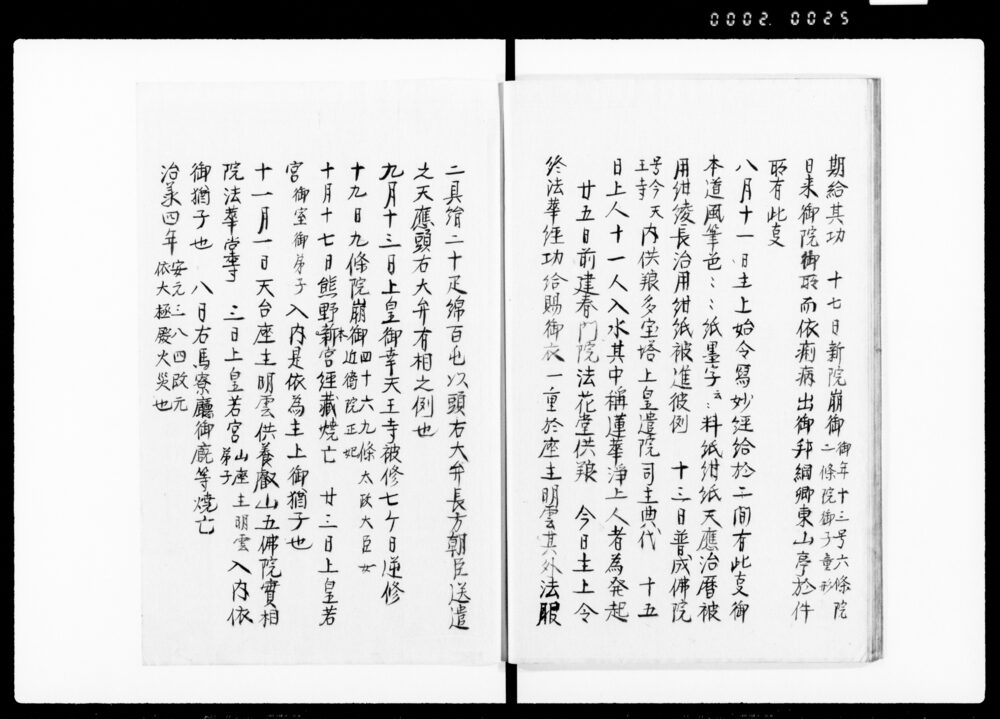 0002.0025
期給其功　十七日新院崩御 御年十三号六條院 二條院御子童形
日来御院御所而依痢病出御邦綱卿東山亭於件
所有此㕝
八月十一日主上始令寫妙經給於二間有此㕝御
本道風筆色〻紙墨字云〻料紙紺紙天應治暦被
用紺綾長治用紺紙被進彼例　十三日普成佛院
号今天王寺 内供粮多宝塔上皇遣院司主典代　十五
日上人十一人入水其中稱蓮華淨上人者為発起
廿五日前建春門院法花堂供粮　今日主上令
終法華經功給賜御衣一重於座主明雲其外法服
二具絹二十疋綿百屯以頭右大弁長方朝臣送遣
之天應頭右大弁有相之例也
九月十三日上皇御幸天王寺被修七ケ日逆修
十九日九條院崩御 四十六九條太政大臣女 本近衛院正妃
十月十七日熊野新宮經藏焼亡　廿三日上皇若
宮 御室御弟子 入内是依為主上御猶子也
十一月一日天台座主明雲供養叡山五佛院實相
院法華堂等　三日上皇若宮 山座主明雲弟子 入内依
御猶子也　八日右馬寮廳御廐等焼亡
治承四年 安元三八四改元 依大極殿火災也